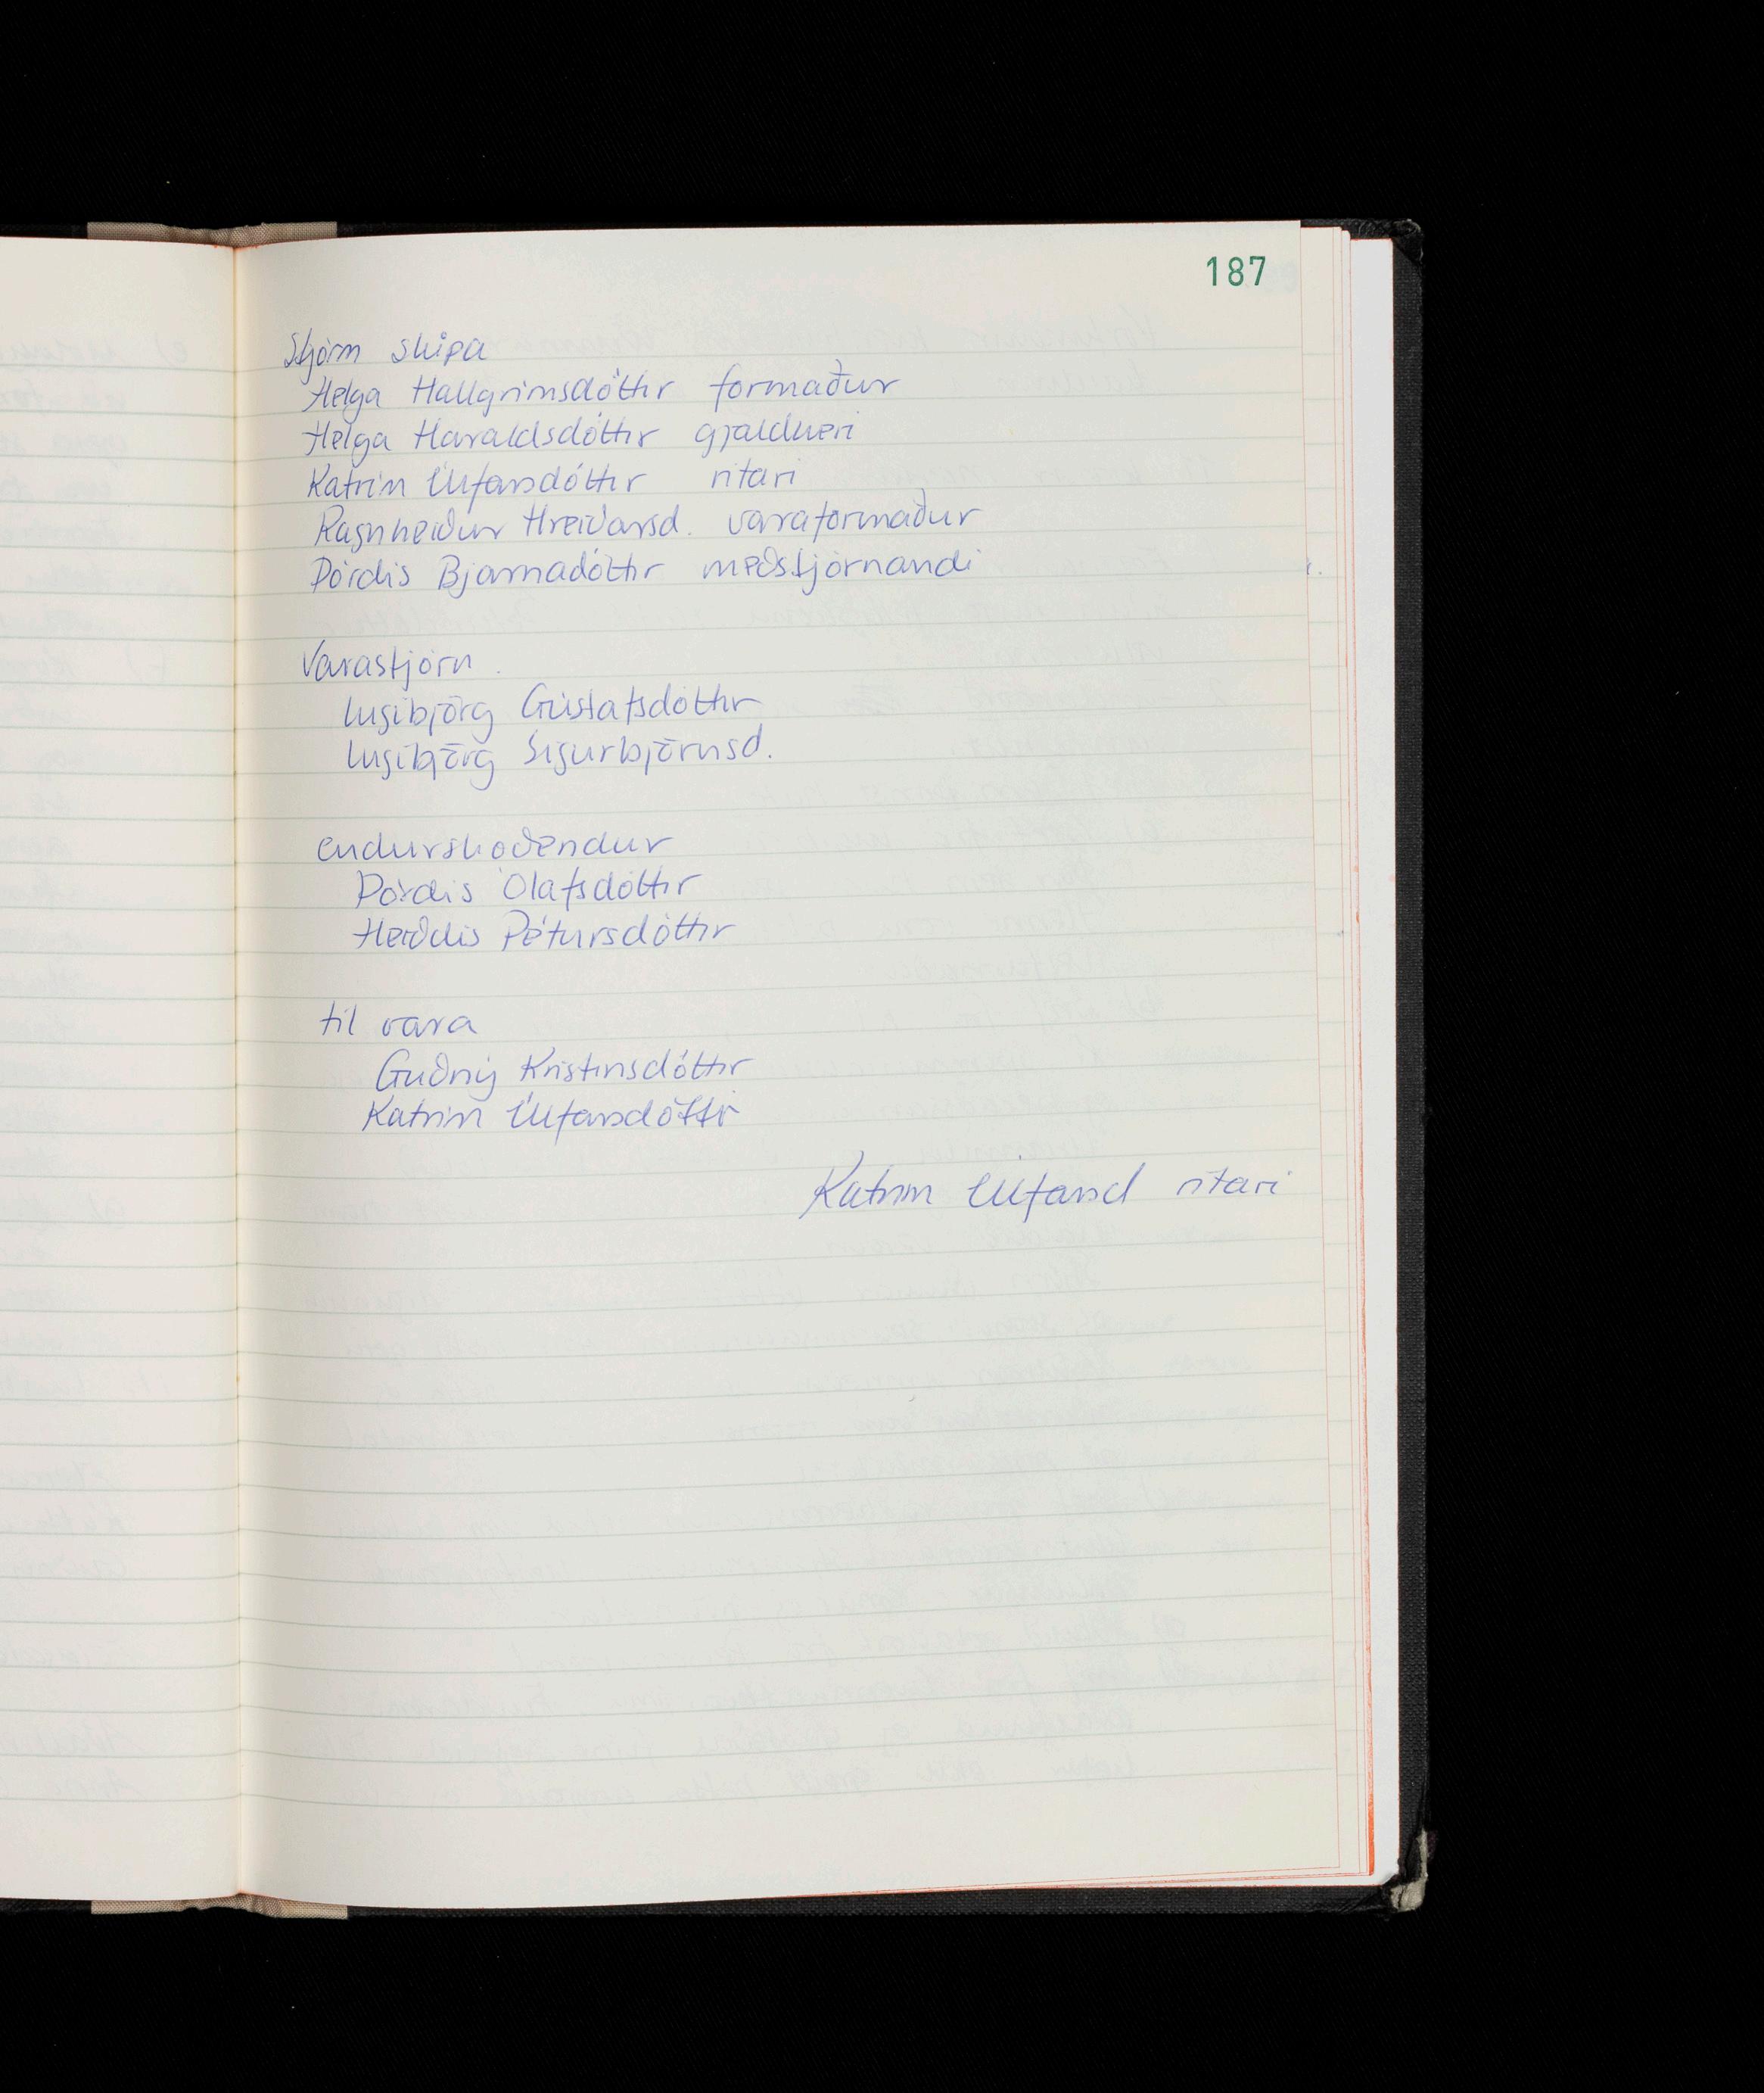 187
Stjórn skipa
Helga Hallgrímsdóttir formaður
Helga Haraldsdóttir gjaldkeri
Katrín Úlfarsdóttir ritari
Ragnheiður Hreiðarsd. varaformaður
Þórdís Bjarnadóttir meðstjórnandi
Varastjórn.
Ingibjörg Gústafsdóttir
Ingibjörg Sigurbjörnsd.
endurskoðendur
Þórdís Ólafsdóttir
Heiðdís Pétursdóttir
til vara
Guðný Kristinsdóttir
Katrín Úlfarsdóttir
Katrín Úlfarsd ritari